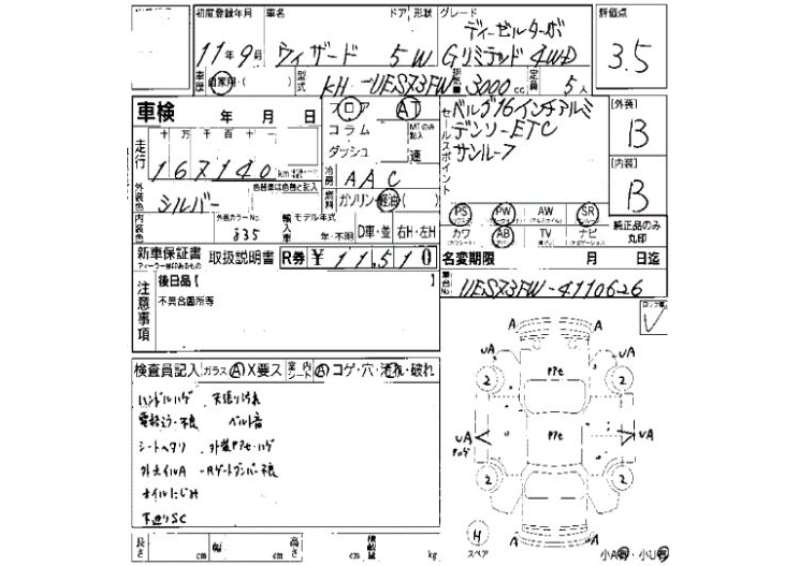 初度登録年月 車名 ドア 形状 グレード 評価点
ディーゼルターボ
11年9月 ウィザード 5W Gリミテッド 4WD 3.5
車歴 自家用・( ) 型式 KH-UES73FW 排気量 3000cc 定員 5人
車検 年 月 日 フロア AT セールスポイント ベルグ16インチアルミ [外装]
コラム MTのみ記入 デンソーETC B
走行 十万千百十一 ダッシュ 速 サンルーフ
167140 km [内装]
冷房 AAC B
外装色 シルバー 色替車は色替と記入 燃料 ガソリン・軽油( )
PS PW AW SR 純正品のみ丸印
内装色 外装カラーNo. 835 輸入車 モデル年式 年・不明 D車・並 右H・左H カワ AB TV ナビ
新車保証書 取扱説明書 R券 ¥11,510 名変期限 月 日迄
ディーラー印あるもの
注意事項 後日品[ ] 車台No. UES73FW-4110626
不具合箇所等
検査員記入 ガラス A X要ス 室内シート A コゲ・穴・汚れ・破れ
ハンドルハゲ 天張り汚れ
ベルト音
シートヘタリ 外装Pアセ・ハゲ
外ホイルA Rゲートダンパー不良
オイルにじみ
下廻りSC
A A
UA Pアセ UA
2 2
UA Pアセ UA
2 2
A A
H スペア
長さ cm 幅 cm 高さ cm 積載量 kg 小A ・小U